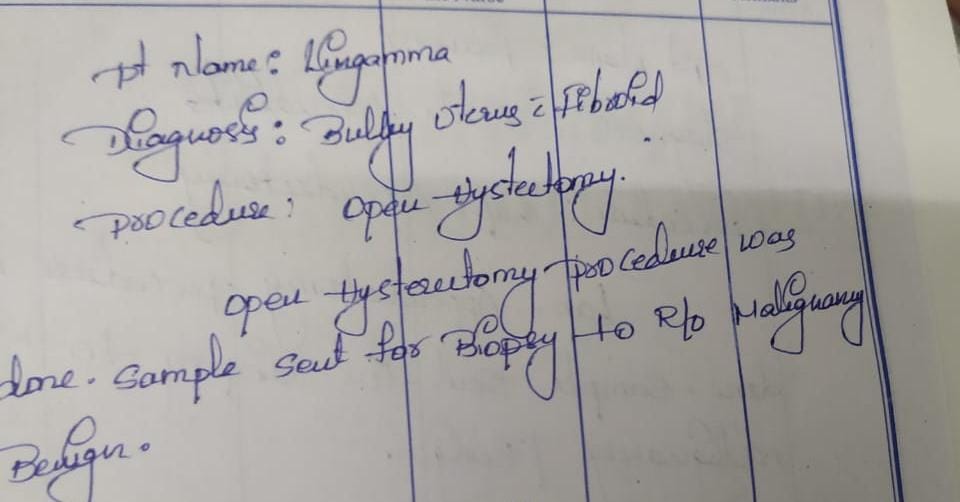 pt Name: Lingamma
Diagnosis: Bulky Uterus = Fibroid
Procedure: open Hystectomy.
open Hysterectomy procedure was
done. Sample sent for Biopsy to R/o Malignany
Benign.